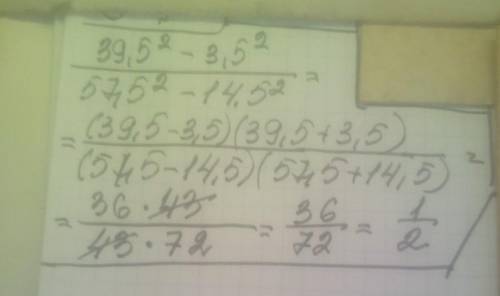 39,5² - 3,5²
57,5² - 14,5² =
= (39,5-3,5)(39,5+3,5)
(57,5-14,5)(57,5+14,5) =
= 36 · 43 / 43 · 72 = 36 / 72 = 1 / 2